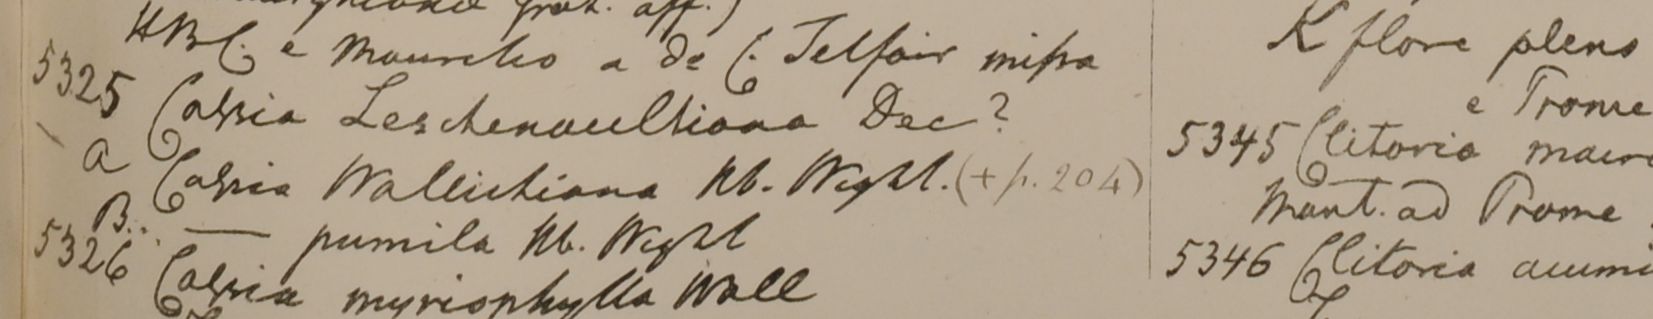 HBC. e Mauritio a de C. Telfair missa
5325 Cassia Leschenaultiana Dec?
A Cassia Wallichiana Hb. Wight. (+ p. 204)
B.. — pumila Hb. Wight
5326 Cassia myriophylla Wall
K flore pleno
e Prome
5345 Clitoria
Mont. ad Prome
5346 Clitoria acumi